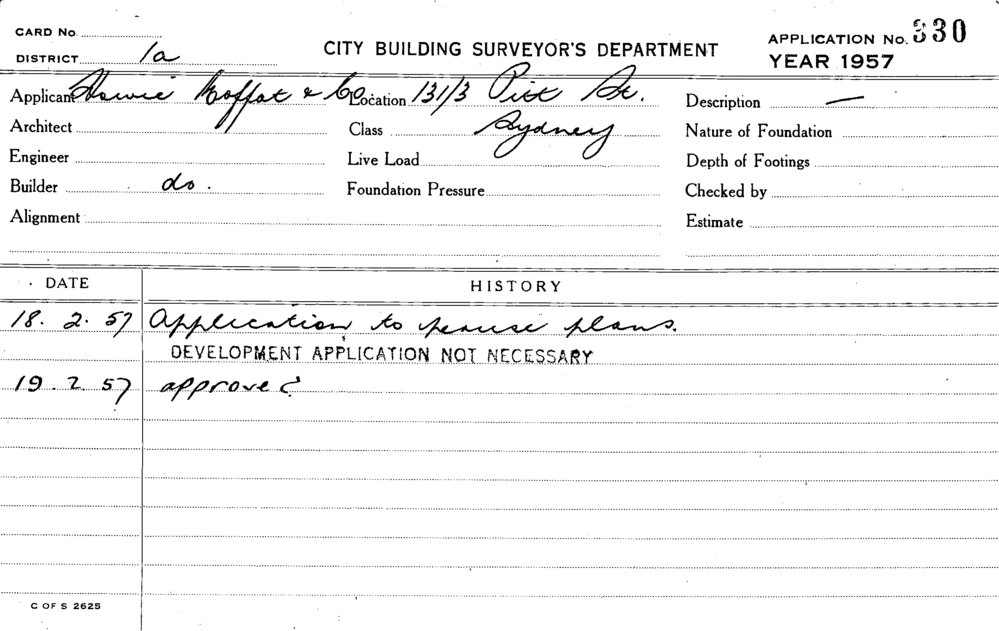 CARD No.
DISTRICT 1a
CITY BUILDING SURVEYOR'S DEPARTMENT
APPLICATION No. 330
YEAR 1957
Applicant Howie Moffat & Co. Location 131/3 Pitt St. Description —
Architect Class Sydney Nature of Foundation
Engineer Live Load Depth of Footings
Builder do. Foundation Pressure Checked by
Alignment Estimate
DATE HISTORY
18. 2. 57 Application to peruse plans.
DEVELOPMENT APPLICATION NOT NECESSARY
19. 2 57 approved
C OF S 2625